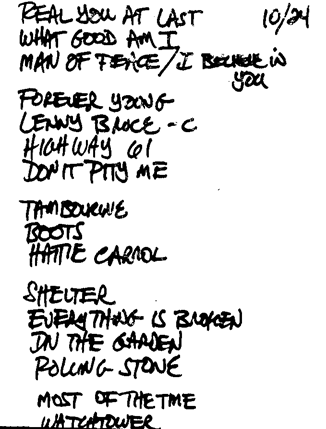 REAL YOU AT LAST 10/24
WHAT GOOD AM I
MAN OF PEACE/I BELIEVE IN
YOU
FOREVER YOUNG
LENNY BRUCE - C
HIGHWAY 61
DON'T PITY ME
TAMBOURINE
BOOTS
HATTIE CARROL
SHELTER
EVERYTHING IS BROKEN
IN THE GARDEN
ROLLING STONE
MOST OF THE TIME
WATCHTOWER